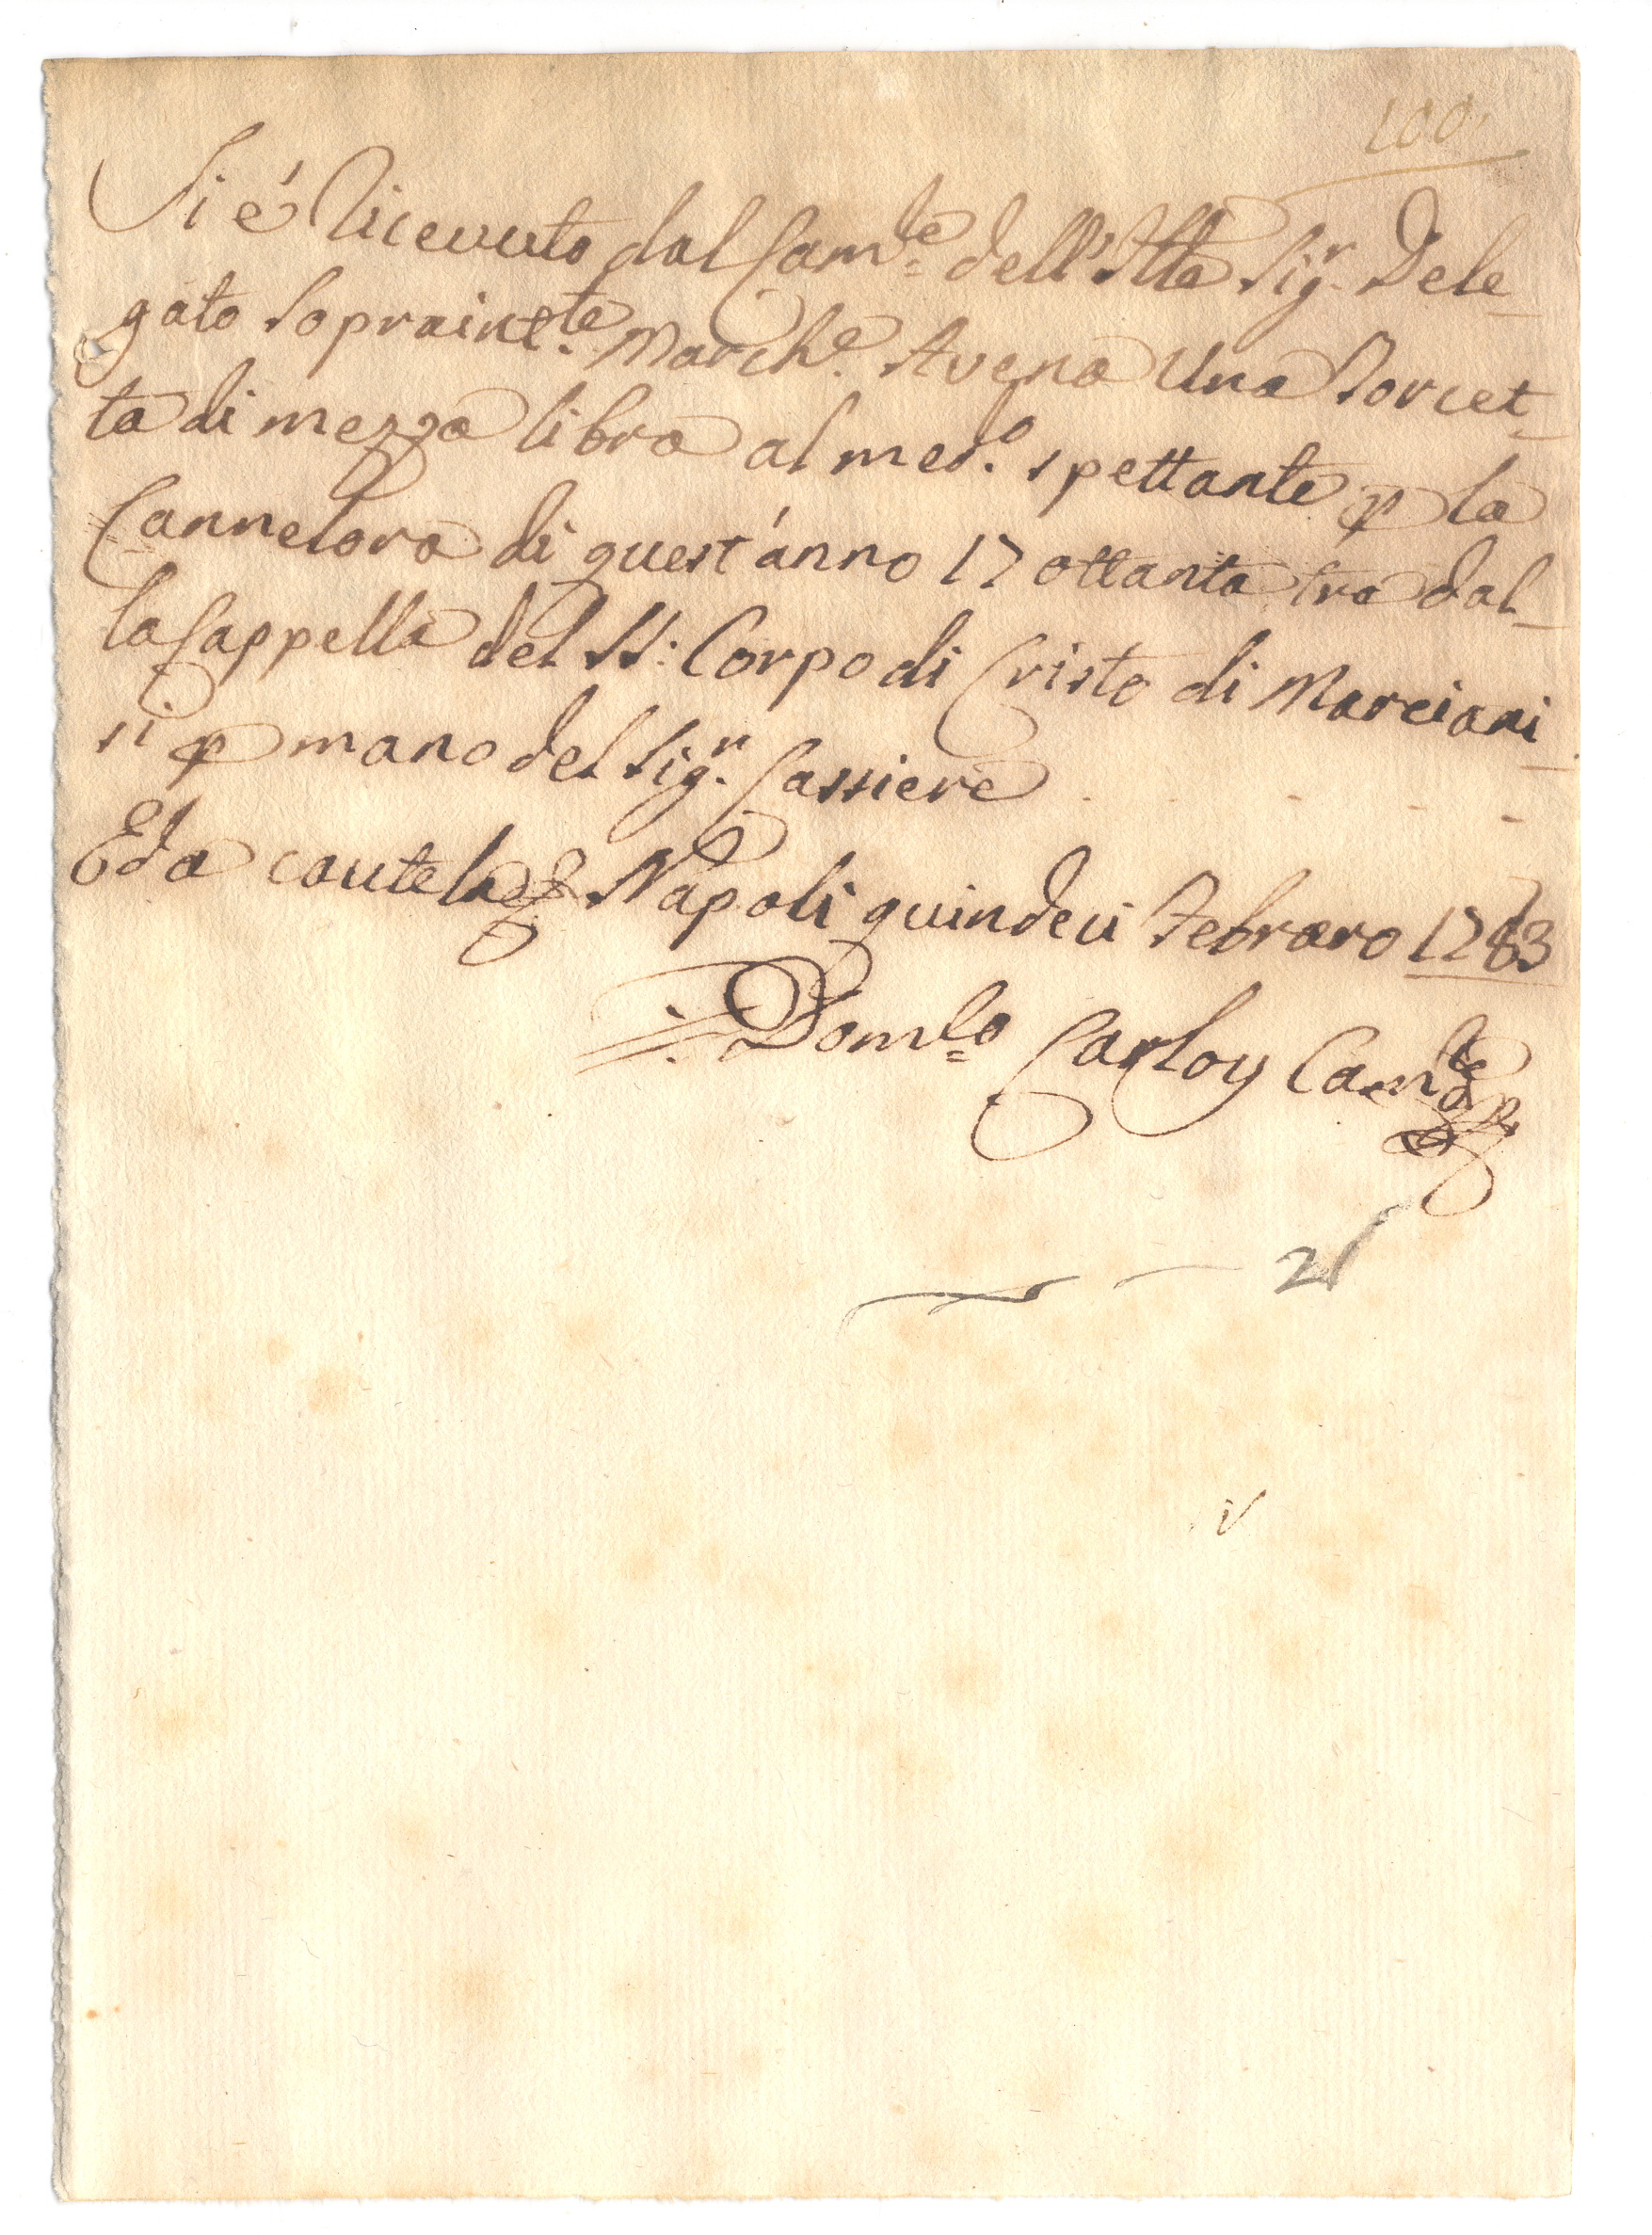 100
Si è Ricevuto dal Cam.te dell'Ill.e Sig.r Dele_
gato Sopraint.te March.e Avena Una Torcet_
ta di mezza libra al med.o spettante p la
Cannelora di quest'anno 17 ottanta tre dal_
la Cappella del SS: Corpo di Cristo di Marciani_
si p mano del Sig.r Cassiere
Ed a cautela Napoli quindeci Febraro 1783
Dom.co Carloy Cam.te
21